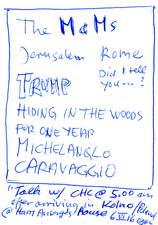 The M&Ms
Jerusalem Rome
Did I tell
you...?
TRUMP
HIDING IN THE WOODS
FOR ONE YEAR
MICHELANGLO
CARAVAGGIO
"Talk w/ CHC @ 5.00 am
after arriving in
@ House 6 VII 16